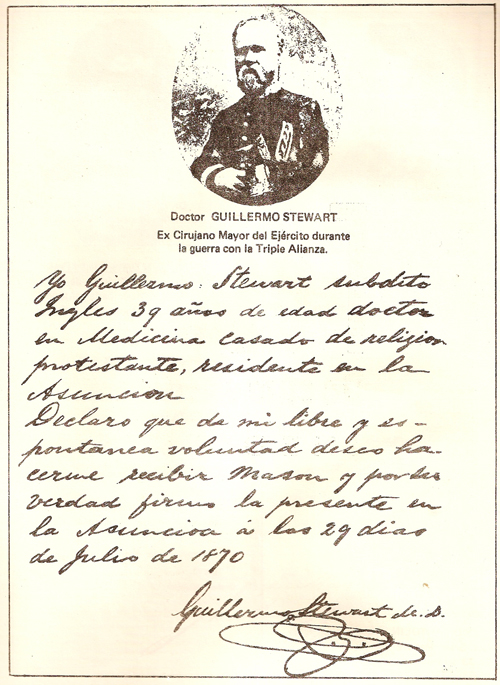 Doctor GUILLERMO STEWART
Ex Cirujano Mayor del Ejército durante
la guerra con la Triple Alianza.
Yo Guillermo Stewart subdito
Ingles 39 años de edad doctor
en Medicina casado de religion
protestante, residente en la
Asuncion
Declaro que de mi libre y es-
pontanea voluntad deseo ha-
cerme recibir Mason y por ser
verdad firmo la presente en
la Asuncion á los 29 dias
de Julio de 1870
Guillermo Stewart M.D.